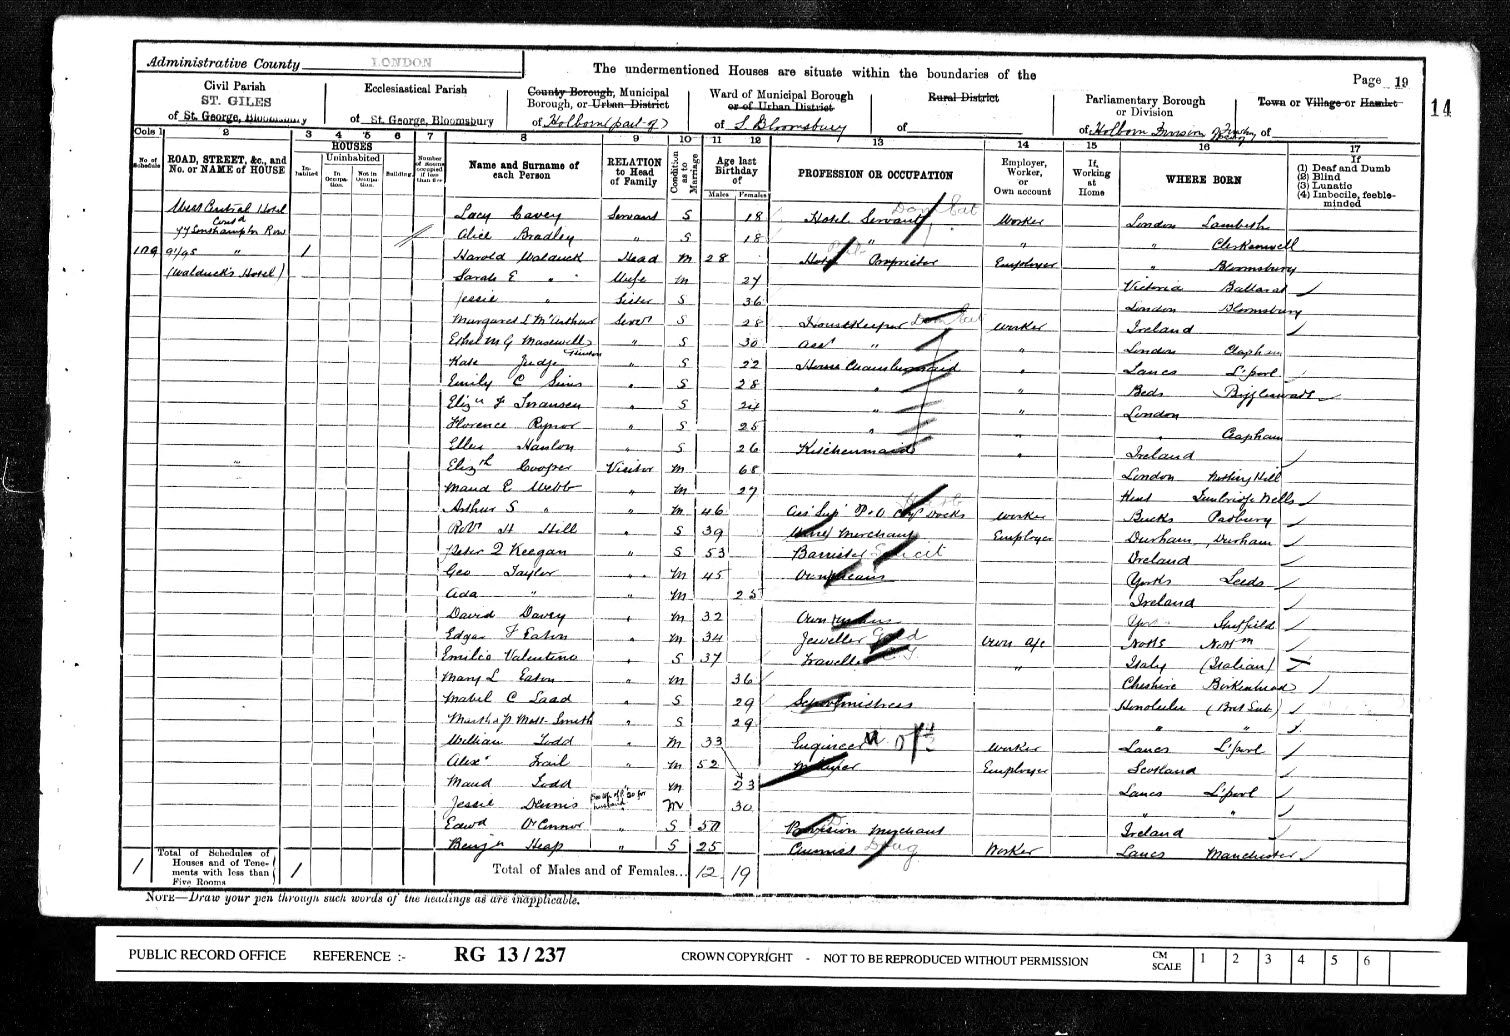 Administrative County LONDON
The undermentioned Houses are situate within the boundaries of the
Page 19
14
Civil Parish
ST. GILES
of St. George, Bloomsbury
Ecclesiastical Parish
of St. George, Bloomsbury
County Borough, Municipal
Borough, or Urban District
of Holborn (part of)
Ward of Municipal Borough
or of Urban District
of S Bloomsbury
Rural District
of
Parliamentary Borough
or Division
of Holborn Division of Finsbury
Town or Village or Hamlet
of
Cols 1 2 3 4 5 6 7 8 9 10 11 12 13 14 15 16 17
No of Schedule
ROAD, STREET, &c., and No. or NAME of HOUSE
HOUSES
Inhabited
Uninhabited
In Occupation.
Not in Occupation.
Building
Number of Rooms occupied if less than five
Name and Surname of each Person
RELATION to Head of Family
Condition as to Marriage
Age last Birthday of
Males Females
PROFESSION OR OCCUPATION
Employer, Worker, or Own account
If, Working at Home
WHERE BORN
If
(1) Deaf and Dumb
(2) Blind
(3) Lunatic
(4) Imbecile, feeble-minded
West Central Hotel
Contd
Southampton Row
Lucy Cavey Servant S 18 Hotel Servant Worker London Lambeth
Alice Bradley " S 18 " " " Clerkenwell
109 91/95 " 1 Harold Walduck Head M 28 Hotel Proprietor Employer " Bloomsbury
(Walduck's Hotel) Sarah E " Wife M 27 Victoria Ballarat
Jessie " Sister S 36 London Bloomsbury
Margaret L McArthur Servt S 28 Housekeeper Worker Ireland
Ethel M G " S 30 Asst " " London Clapham
Kate Judge " S 22 House Chambermaid " Lancs L'pool
Emily C Sims " S 28 " " Beds Biggleswade
Elizth F " S 24 " " London
Florence " S 25 " " " Clapham
Ellen Hanlon " S 26 Kitchenmaid " Ireland
Elizth Cooper Visitor M 68 London Notting Hill
Maud E Webb " M 27 Kent Tunbridge Wells
Arthur S " " M 46 P & O Docks Worker Bucks Padbury
Robt H Hill " S 39 Merchant Employer Durham, Durham
Peter Q Keegan " S 53 Barrister Ireland
Geo Taylor " M 45 Own means Yorks Leeds
Ada " " M 25 Ireland
David Davey " M 32 Own means Sheffield
Edgar F Eaton " M 34 Jeweller Own a/c Notts Nottm
Emilio Valentino " S 37 Traveller " Italy (Italian)
Mary L Eaton " M 36 Cheshire Birkenhead
Mabel C " S 29 Schoolmistress Honolulu (Brit Sub)
Martha P Smith " S 29 " "
William Todd " M 33 Engineer Worker Lancs L'pool
Alexr Trail " M 52 Employer Scotland
Maud Todd M 23 Lancs L'pool
Jessie Dennis " M 30 " "
Edwd O'Connor " S 50 Provision Merchant Ireland
Benjn Heap " S 25 Chemist Worker Lancs Manchester
1 Total of Schedules of Houses and of Tenements with less than Five Rooms 1
Total of Males and of Females... 12 19
NOTE—Draw your pen through such words of the headings as are inapplicable.
PUBLIC RECORD OFFICE REFERENCE :- RG 13/237 CROWN COPYRIGHT - NOT TO BE REPRODUCED WITHOUT PERMISSION CM SCALE 1 2 3 4 5 6